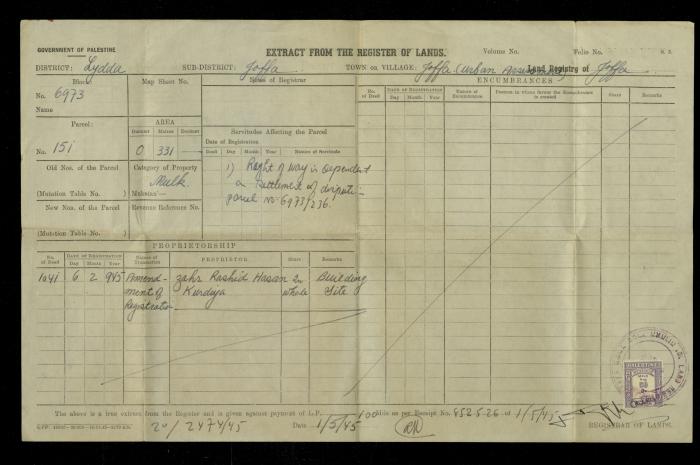 GOVERNMENT OF PALESTINE
EXTRACT FROM THE REGISTER OF LANDS.
Volume No.
Folio No.
DISTRICT: Lydda
SUB-DISTRICT: Joffa
TOWN OR VILLAGE: Joffa (Urban
Land Registry of Joffa
Block
No. 6973
Name
Map Sheet No.
Name of Registrar
ENCUMBRANCES
No. of Deed
DATE OF REGISTRATION
Day Month Year
Nature of Encumbrance
Person in whose favour the Encumbrance is created
Share
Remarks
Parcel:
No. 151
AREA
Dunums Metres Decimet
0 331 —
Servitudes Affecting the Parcel
Date of Registration
Deed Day Month Year Nature of Servitude
1) Right of way is dependent
on settlement of dispute
parcel No 6973/236.
Old Nos. of the Parcel
(Mutation Table No. )
Category of Property
Mulk.
New Nos. of the Parcel
(Mutation Table No. )
Revenue Reference No.
PROPRIETORSHIP
No. of Deed
DATE OF REGISTRATION
Day Month Year
Nature of Transaction
PROPRIETOR
Share
Remarks
1041 6 2 945 Amend- Zahr Rashid Hasan In Building
ment of Kurdiya whole Site
Registration
The above is a true extract from the Register and is given against payment of L.P. 100 Mils as per Receipt No. 852526 of 1/5/45
20/2474/45
Date 1/5/45
REGISTRAR OF LANDS.
PALESTINE